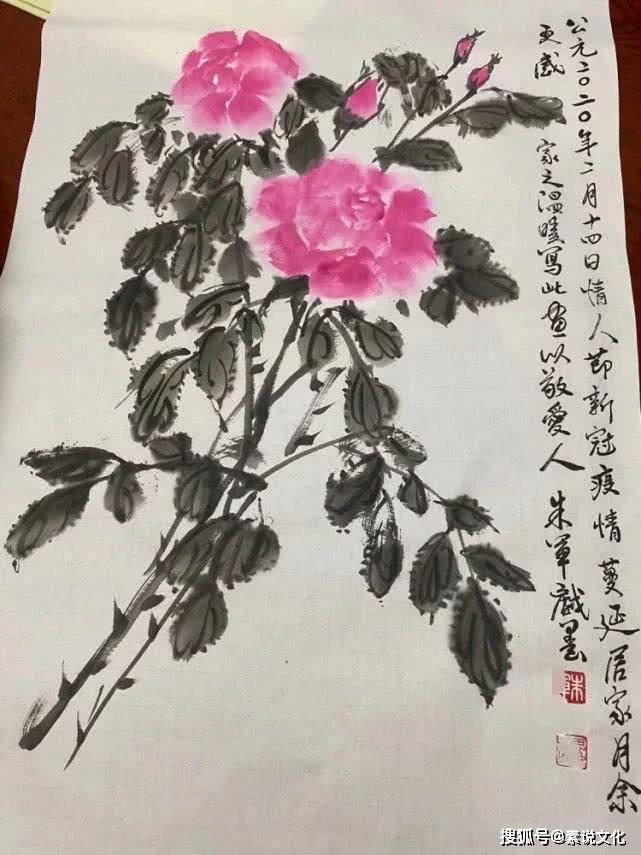 公元二〇二〇年二月十四日情人节新冠疫情蔓延居家月余
更感 家之温暖写此画以敬爱人 朱军戏墨
搜狐号@素说文化